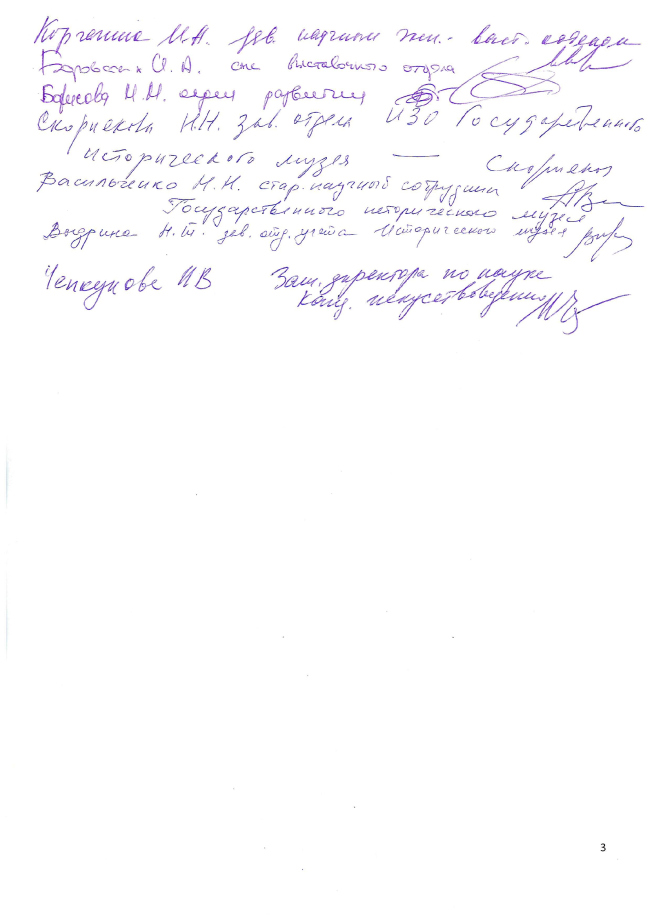 Корганина М.А. зав. научным эксп.- выст. отделом
И. А. спе выставочного отдела
Борисова М.М. отдел развития
Скорнякова Н.Н. зав. отдела ИЗО Государственного
Исторического музея — Скорняков
Васильченко М.Н. стар. научный сотрудник
Государственного исторического музея
Выдрина Н.Т. зав. отд. учета Исторического музея
Чепкунова ИВ Зам. директора по науке
Канд. искусствоведения
3